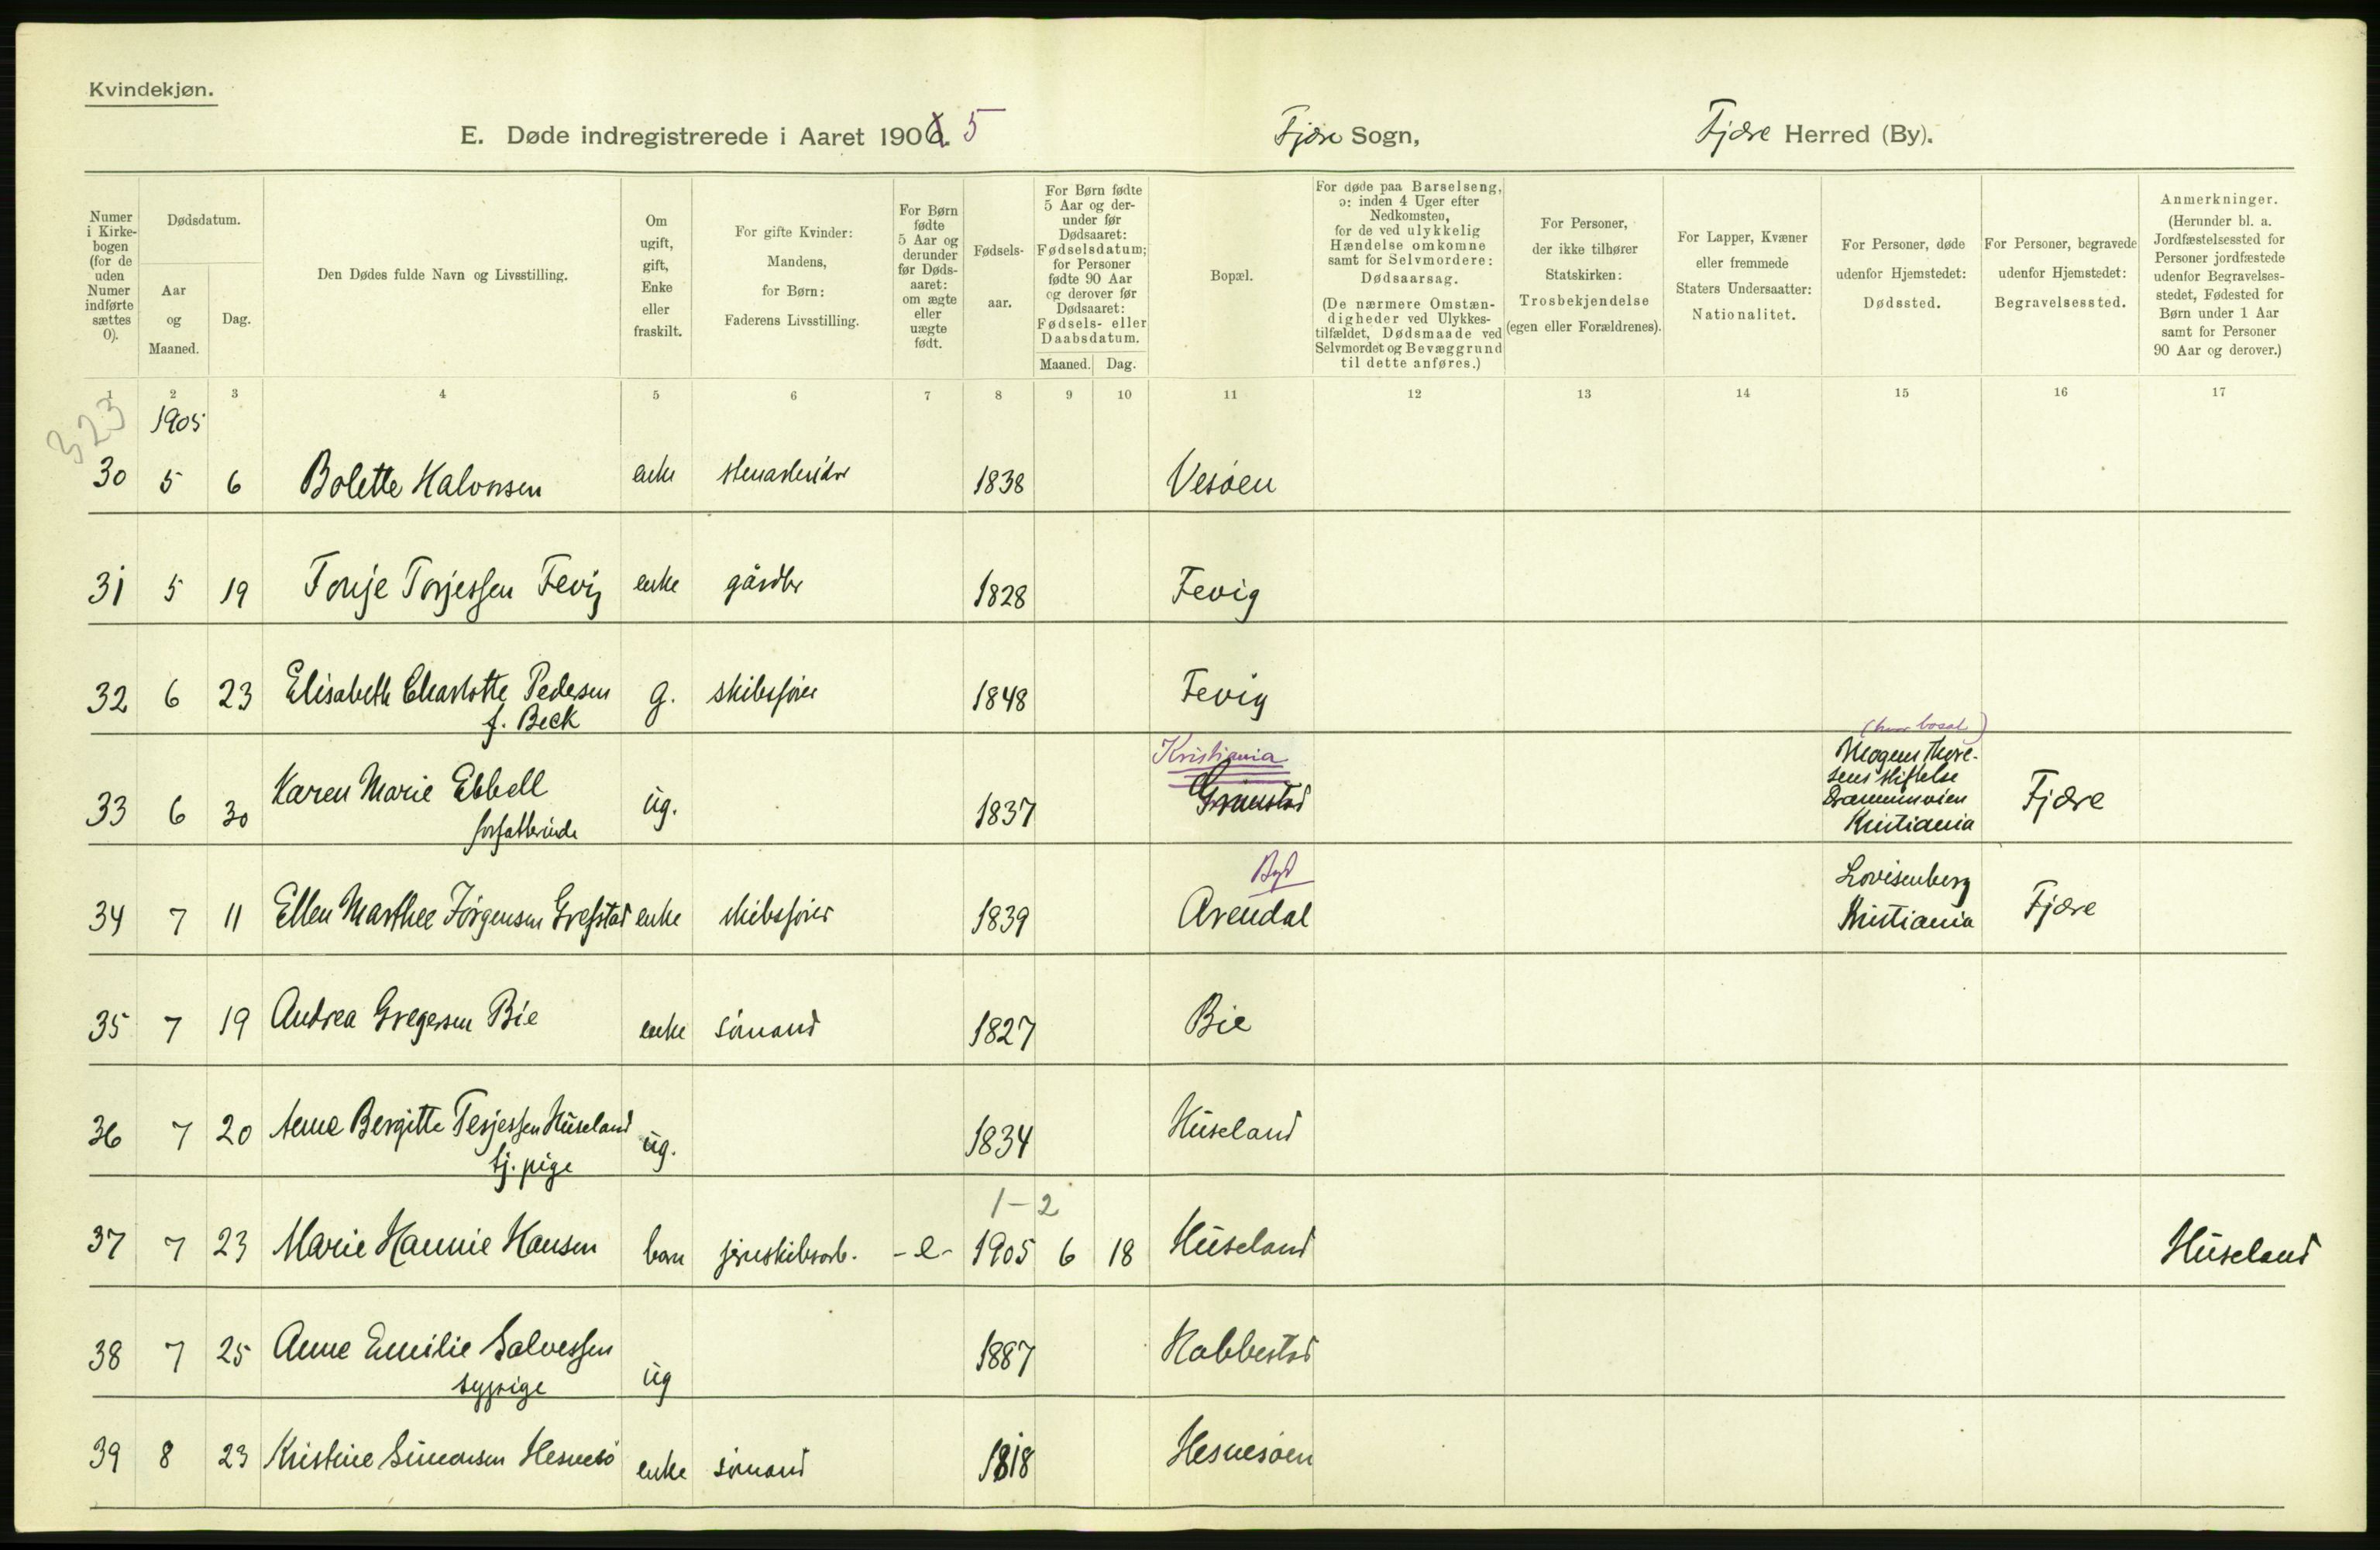 Kvindekjøn.
E. Døde indregistrerede i Aaret 1906. 5 Fjære Sogn, Fjære Herred (By).
Numer i Kirkebogen (for de uden Numer indførte sættes 0).
Dødsdatum.
Aar og Maaned.
Dag.
Den Dødes fulde Navn og Livsstilling.
Om ugift, gift, Enke eller fraskilt.
For gifte Kvinder: Mandens, for Børn: Faderens Livsstilling.
For Børn fødte 5 Aar og derunder før Dødsaaret: om ægte eller uægte født.
Fødselsaar.
For Børn fødte 5 Aar og derunder før Dødsaaret: Fødselsdatum; for Personer fødte 90 Aar og derover før Dødsaaret: Fødsels- eller Daabsdatum.
Maaned. Dag.
Bopæl.
For døde paa Barselseng, ɔ: inden 4 Uger efter Nedkomsten, for de ved ulykkelig Hændelse omkomne samt for Selvmordere: Dødsaarsag.
(De nærmere Omstændigheder ved Ulykkestilfældet, Dødsmaade ved Selvmordet og Bevæggrund til dette anføres.)
For Personer, der ikke tilhører Statskirken: Trosbekjendelse (egen eller Forældrenes).
For Lapper, Kvæner eller fremmede Staters Undersaatter: Nationalitet.
For Personer, døde udenfor Hjemstedet: Dødssted.
For Personer, begravede udenfor Hjemstedet: Begravelsessted.
Anmerkninger.
(Herunder bl. a. Jordfæstelsessted for Personer jordfæstede udenfor Begravelsesstedet, Fødested for Børn under 1 Aar samt for Personer 90 Aar og derover.)
1 2 3 4 5 6 7 8 9 10 11 12 13 14 15 16 17
323
1905
30 5 6 Bolette Halvorsen enke 1838 Vesøen
31 5 19 Tonje Torjessen Fevig enke gårdbr 1828 Fevig
32 6 23 Elisabeth Charlotte Pedersen g. skibsfører 1848 Fevig
f. Beck
Kristiania
(hvor bosat)
33 6 30 Karen Marie Ebbell ug. 1837 Grimstad Mogens Thoresens stiftelse Drammensveien Kristiania Fjære
forfatterinde
By
34 7 11 Ellen Marthee Jörgensen Grefstad enke skibsfører 1839 Arendal Lovisenberg Kristiania Fjære
35 7 19 Andrea Gregersen Bie enke sömand 1827 Bie
36 7 20 Anne Bergitte Terjessen Huseland ug. 1834 Huseland
tj. pige
1-2
37 7 23 Marie Hannie Hansen barn jernskibsarb. -e- 1905 6 18 Huseland Huseland
38 7 25 Anne Emilie Salvessen ug 1887 Habbestad
sypige
39 8 23 Kristine Simonsen Hesnesö enke sömand 1818 Hesnesöen